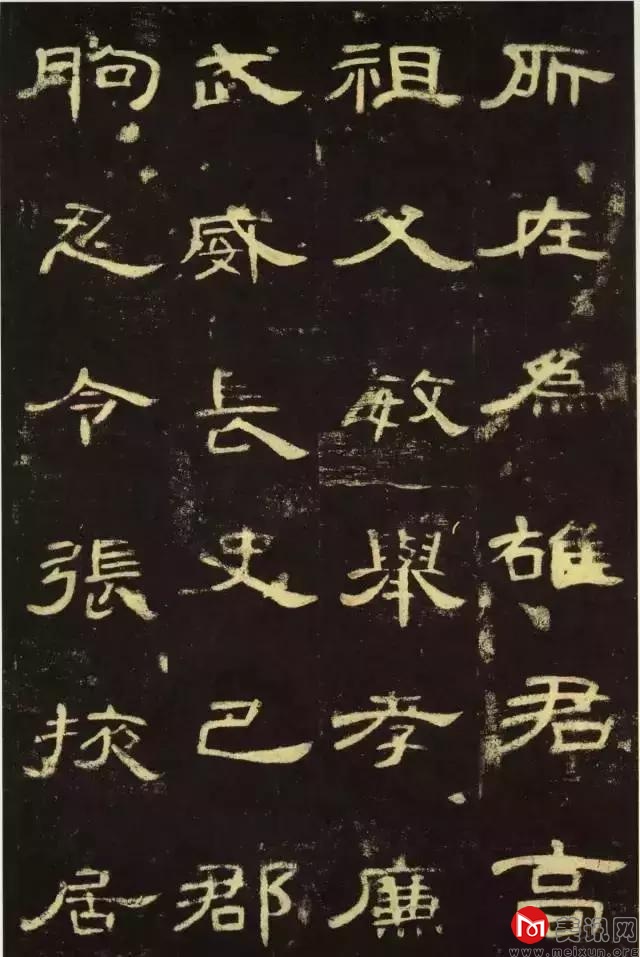 所在為雄君高
祖父敏舉孝廉
武威長史巴郡
朐忍令張掖居
美讯网
www.meixun.org